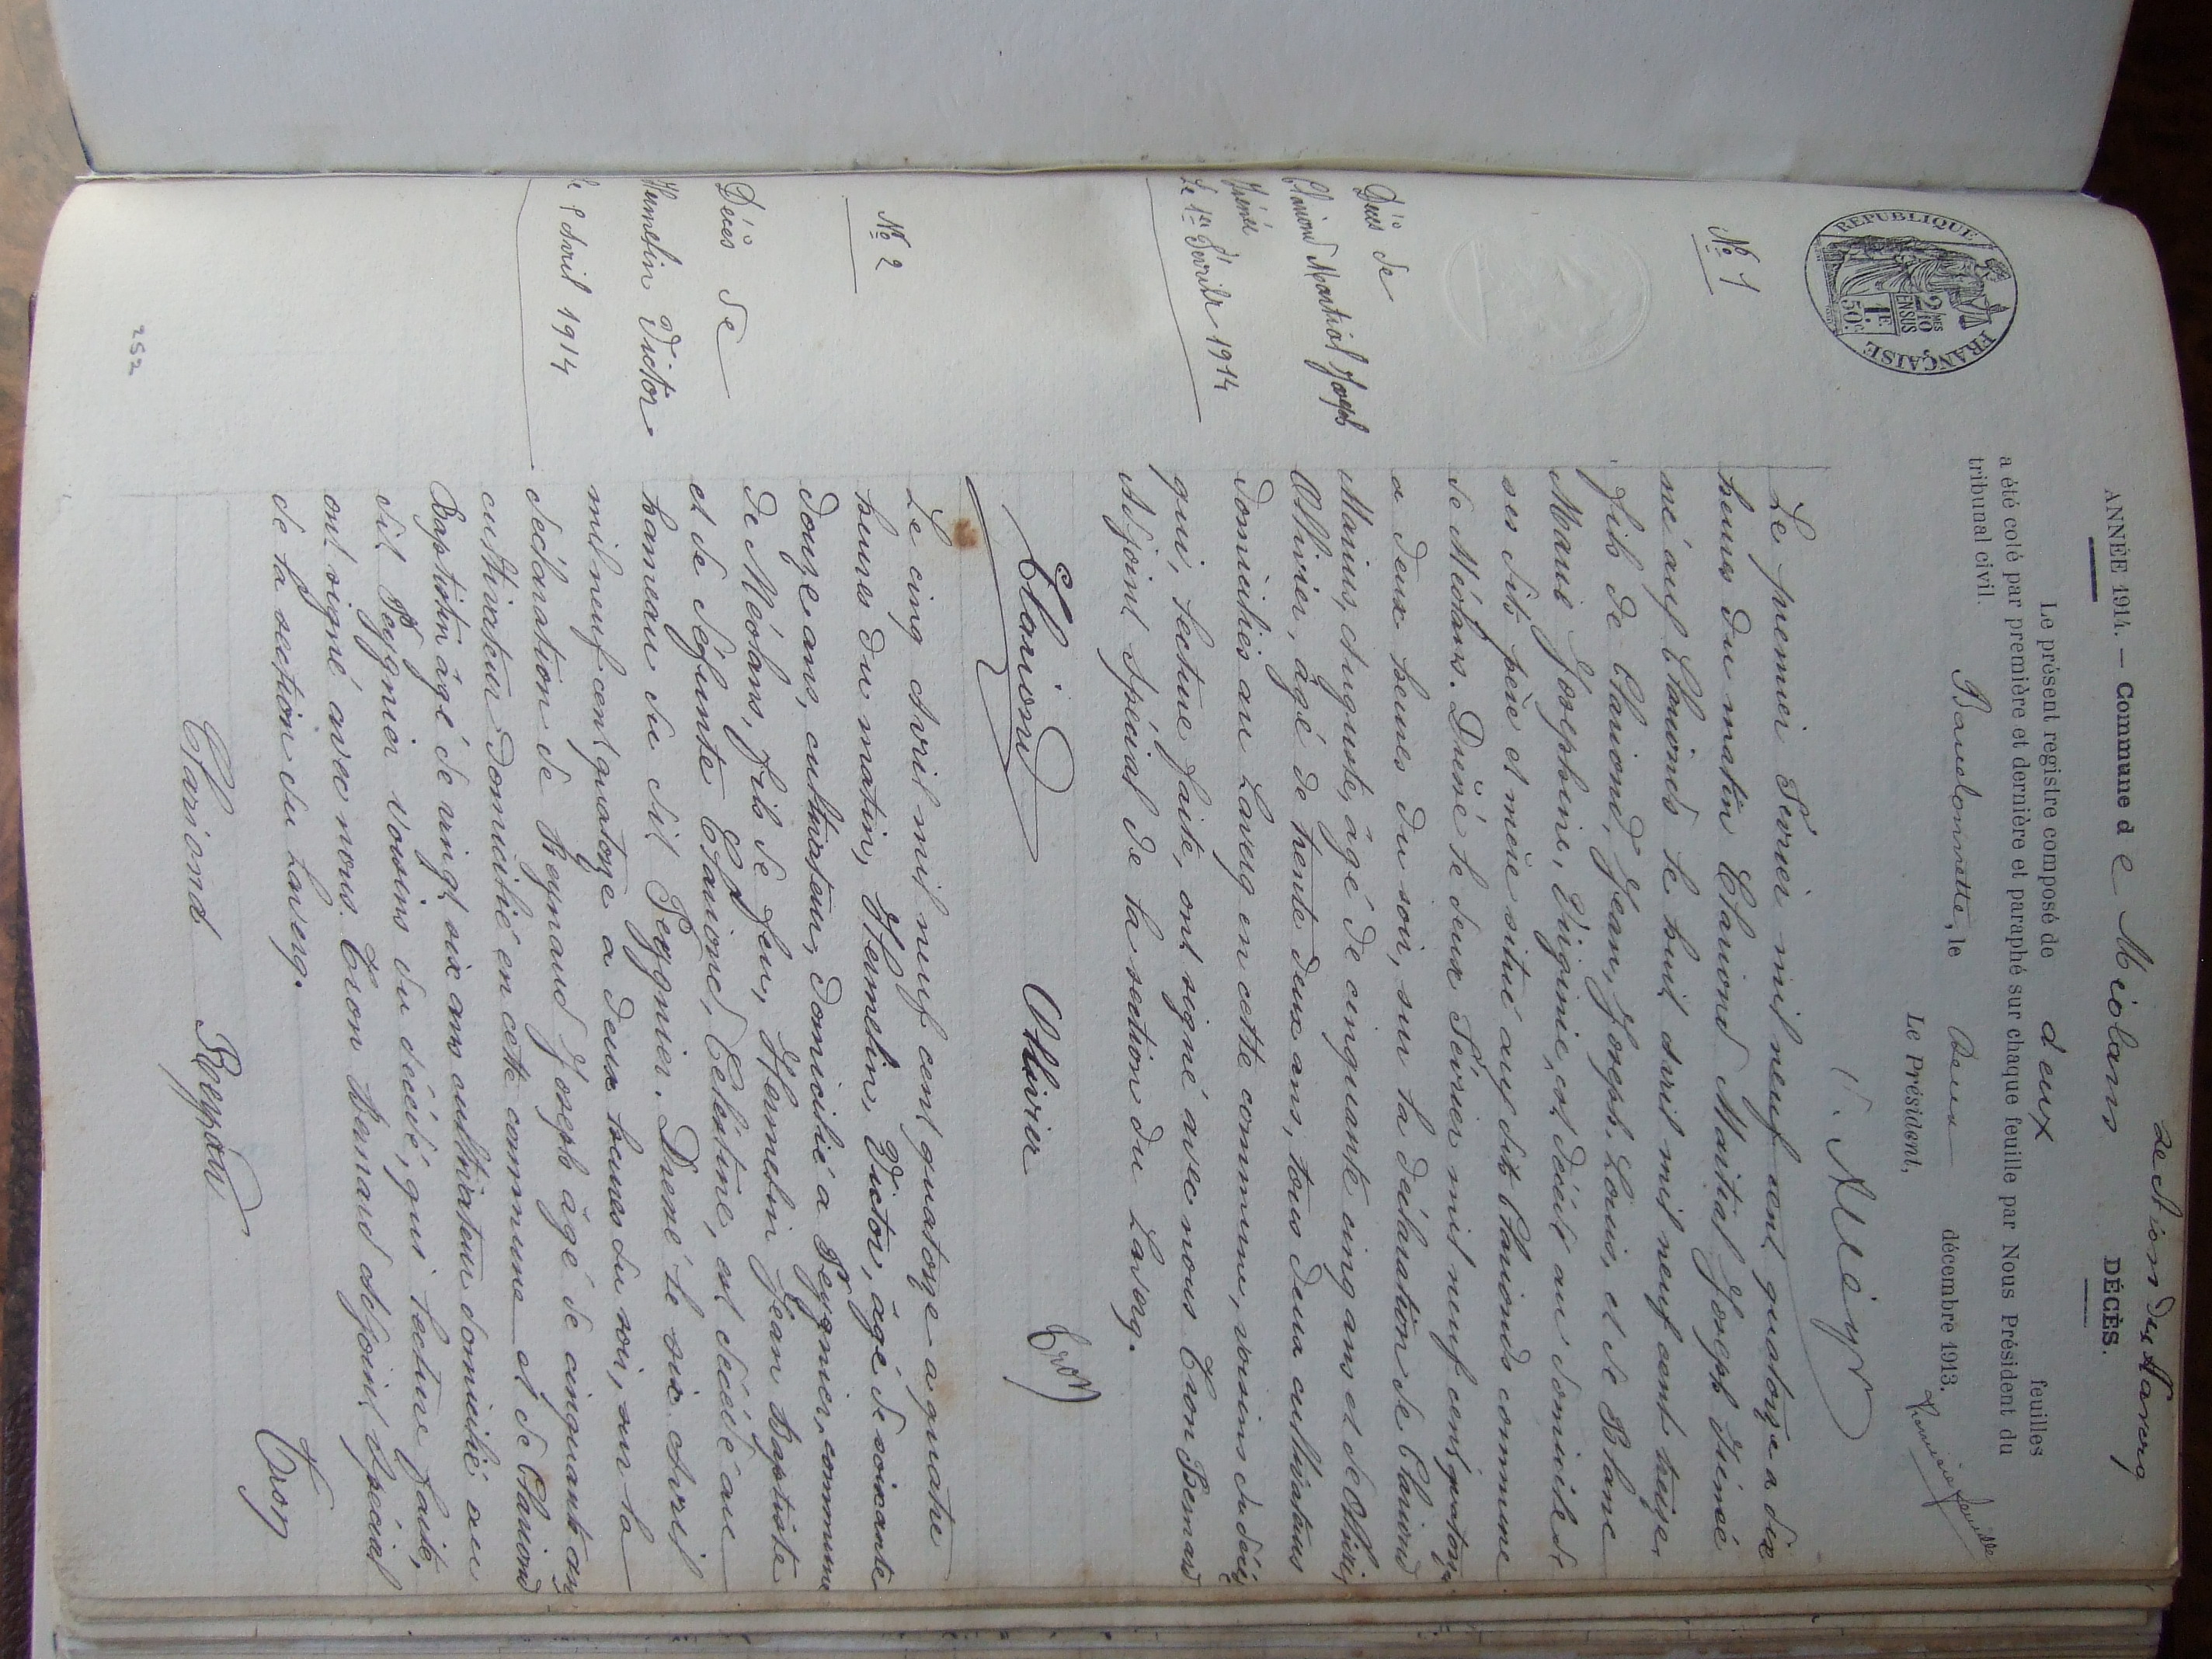 section du Laverq
ANNÉE 1914. — Commune de Méolans DÉCÈS.
Le présent registre composé de deux feuilles
a été coté par première et dernière et paraphé sur chaque feuille par Nous Président du
tribunal civil.
Barcelonnette, le onze décembre 1913.
Le Président,
REPUBLIQUE FRANÇAISE
2/10 MES EN SUS
1F 50c
No 1
Décès de
Clariond Martial Joseph
Irénée
Le 1er Février 1914
Le premier Février mil neuf cent quatorze a dix
heures du matin Clariond Martial Joseph Iréné
né aux Clarionds le huit avril mil neuf cent treize
fils de Clariond, Jean, Joseph, Louis, et de Blanc
Marie Joséphine, Virginie, est décédé au domicile de
ses dits père et mère situé aux dits Clarionds commune
de Méolans. Dréssé le deux Février mil neuf cent quatorze
a deux heures du soir, sur la déclaration de Clariond
Marius, Auguste, âgé de cinquante cinq ans et de Ollivier,
Ollivier, âgé de trente deux ans, tous deux cultivateurs
domiciliés au Laverq en cette commune, voisins du décédé
qui, lecture faite, ont signé avec nous Tron Bernard
Adjoint Spécial de la section du Laverq.
Clariond Ollivier Tron
No 2
Décès de
Hermelin Victor
le 5 Avril 1914
Le cinq Avril mil neuf cent quatorze a quatre
heures du matin, Hermelin, Victor, âgé de soixante
douze ans, cultivateur, domicilié a Peygnier, commune
de Méolans, fils de feu, Hermelin Jean Baptiste
et de défunte Clariond, Célestine, est décédé au
hameau du dit Peygnier. Dressé le six Avril
mil neuf cent quatorze a deux heures du soir, sur la
déclaration de Reynaud Joseph âgé de cinquante ans
cultivateur domicilié en cette commune et de Clariond
Baptistin âgé de vingt six ans cultivateur domicilié au
dit Peygnier voisins du décédé, qui lecture faite,
ont signé avec nous Tron Bernard Adjoint Spécial
de la section du Laverq.
Clariond Reynaud Tron
252